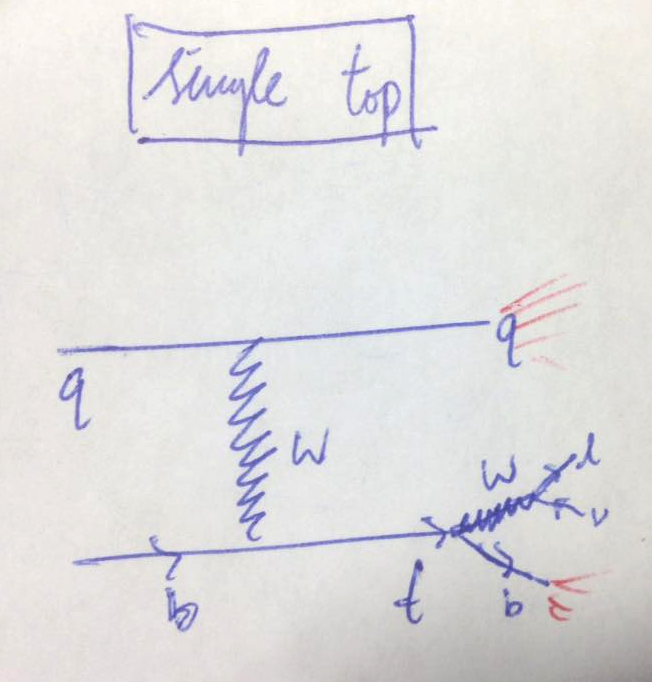 single top
q
q
W
W
l
ν
b
t
b